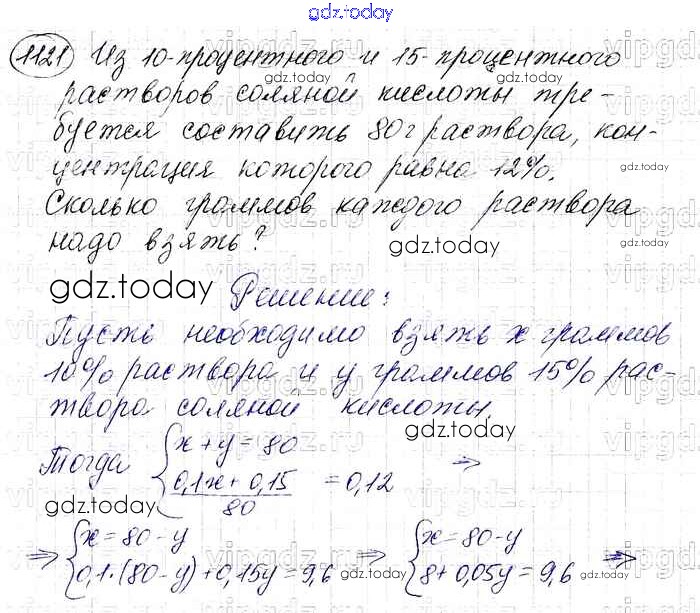 gdz.today
1121 Из 10-процентного и 15-процентного
растворов соляной кислоты тре-
буется составить 80 г раствора, кон-
центрация которого равна 12%.
Сколько граммов каждого раствора
надо взять?
gdz.today
Решение:
Пусть необходимо взять x граммов
10% раствора и y граммов 15% рас-
твора соляной кислоты.
Тогда { x + y = 80
(0,1x + 0,15)/80 = 0,12 ⇒
⇒ { x = 80 - y
0,1·(80-y) + 0,15y = 9,6 ⇒ { x = 80 - y
8 + 0,05y = 9,6 ⇒